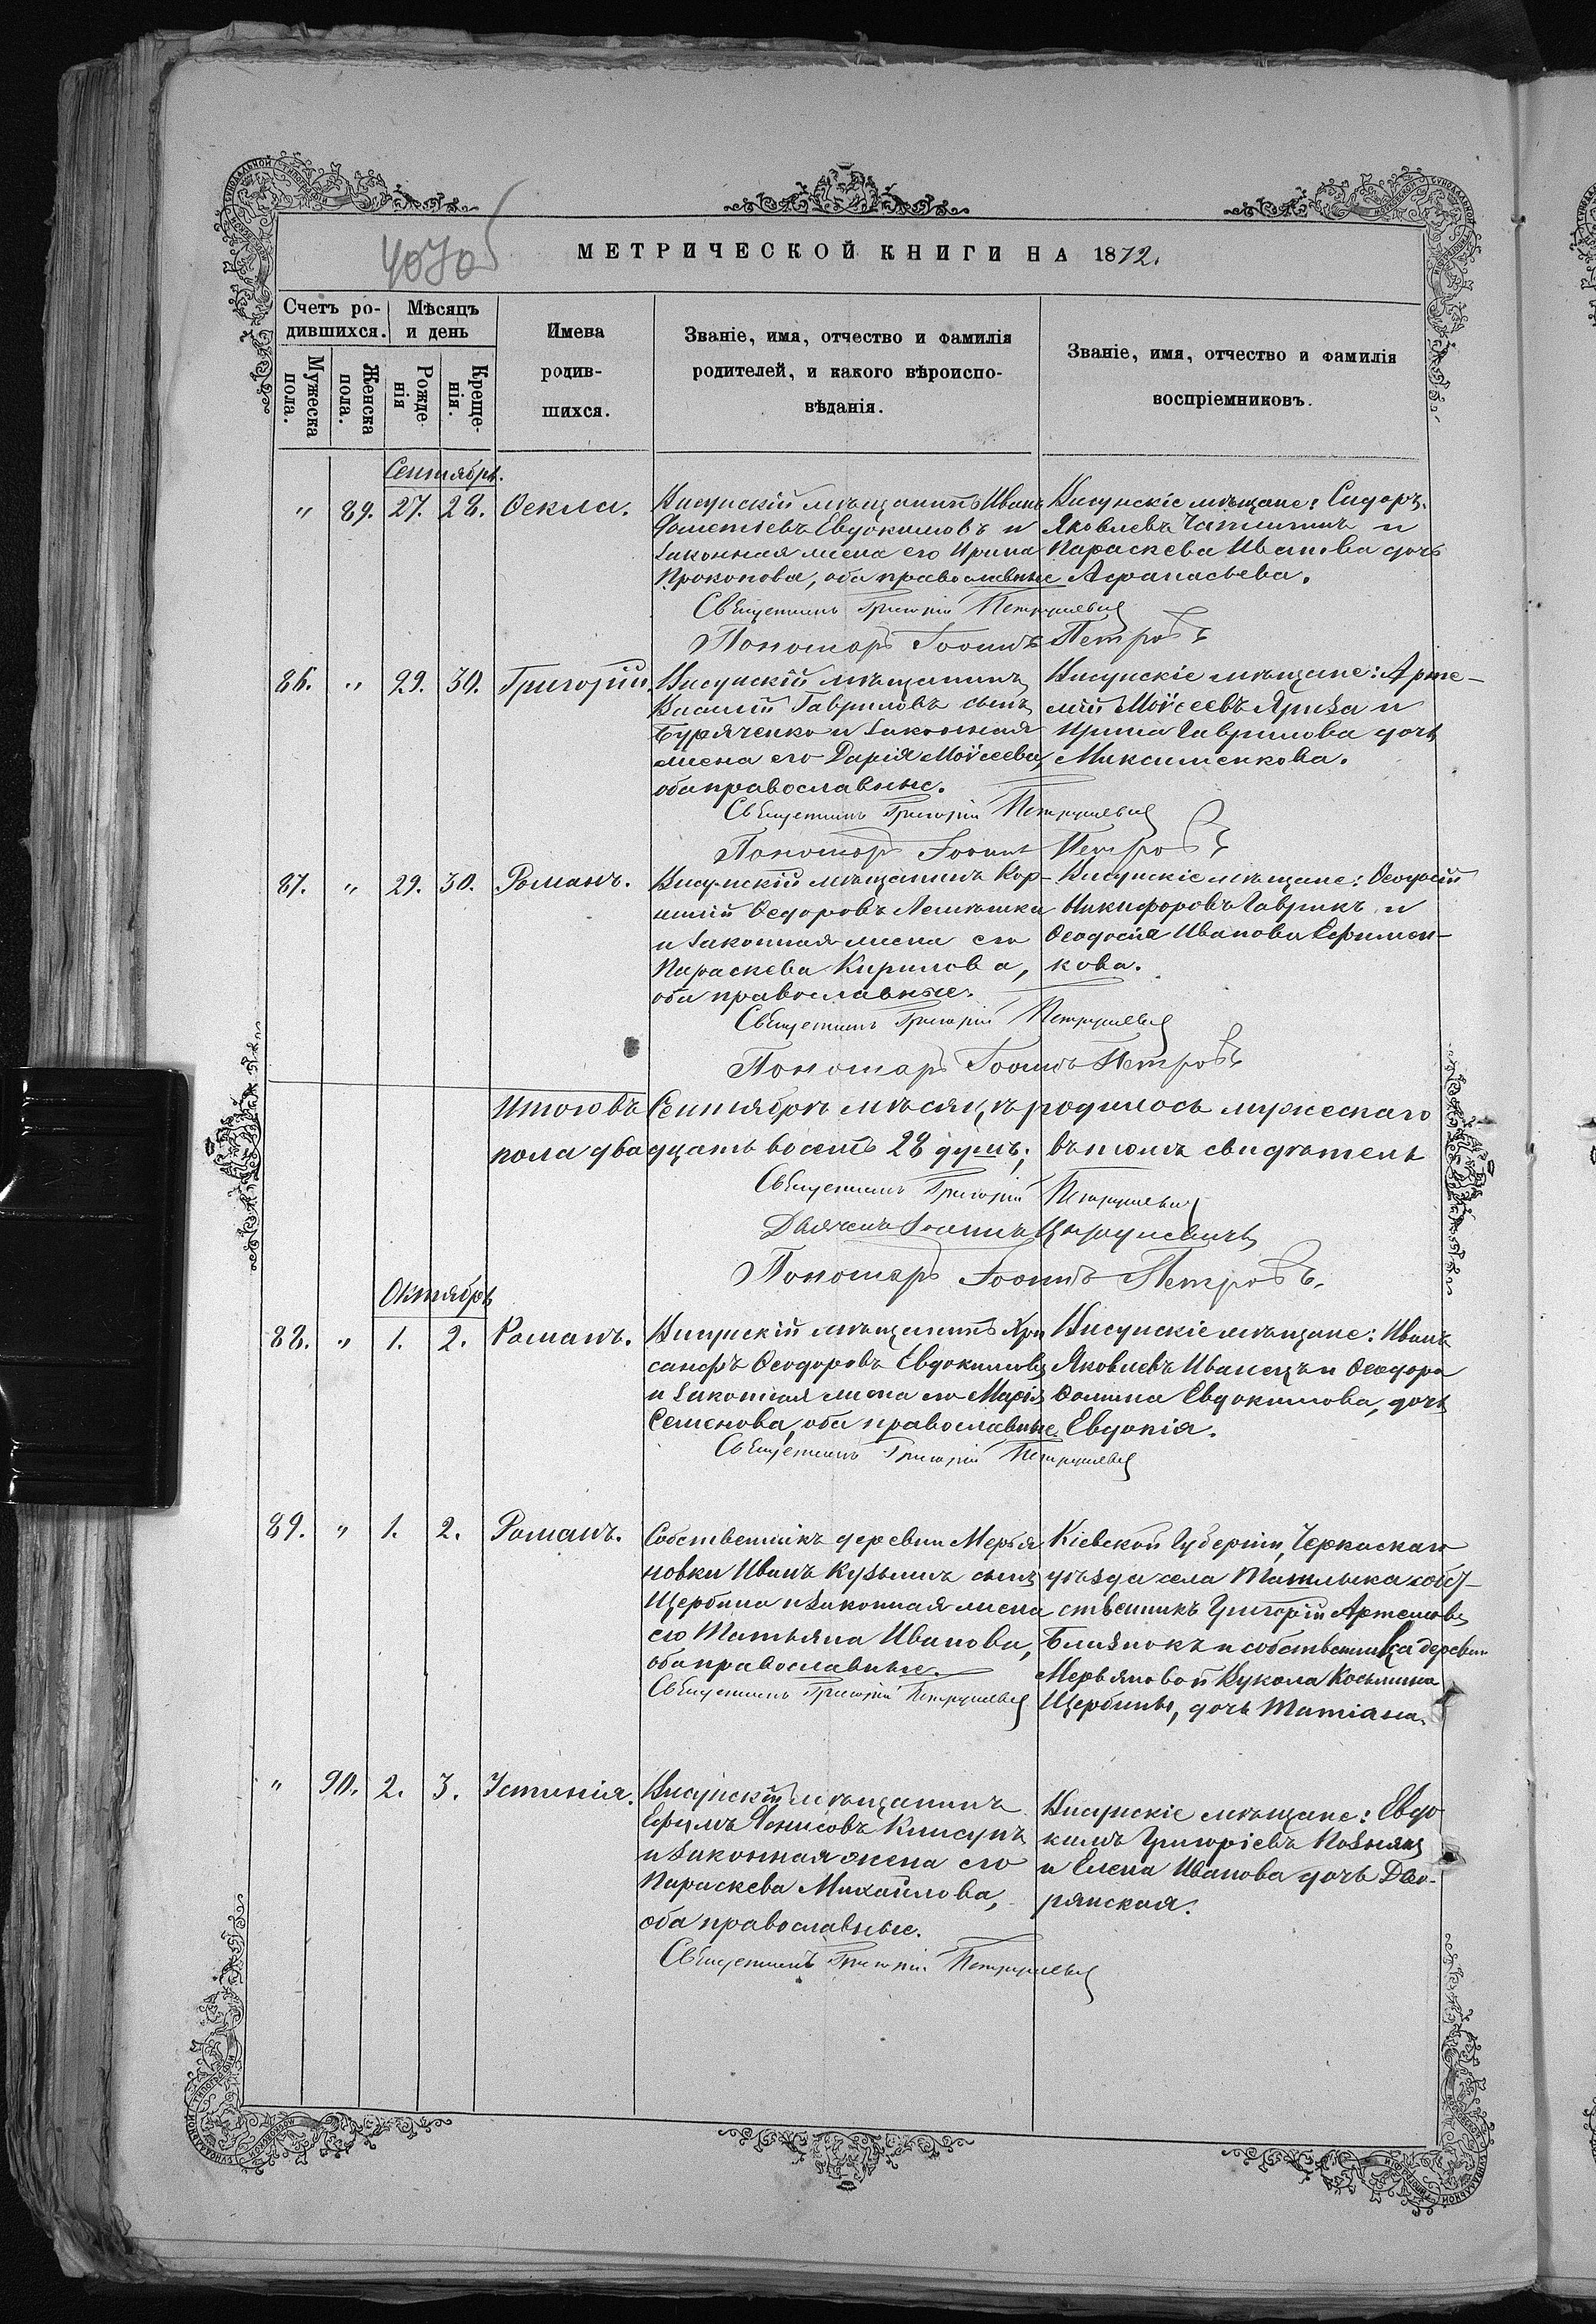 4070
МЕТРИЧЕСКОЙ КНИГИ НА 1872.
Счетъ ро-
дившихся.
Мѣсяцъ
и день
Мужеска
пола.
Женска
пола.
Рожде-
нія
Креще-
нія.
Имена
родив-
шихся.
Званіе, имя, отчество и фамилія
родителей, и какого вѣроиспо-
вѣданія.
Званіе, имя, отчество и фамилія
воспріемниковъ.
Сентябрь.
" 89. 27. 28. Ѳекла.
Висунскій мѣщанинъ Иванъ
Евдокимовъ и
законная жена его Ирина
Прокопова, оба православные
Висунскіе мѣщане: Сидоръ
Яковлевъ и
Параскева Иванова дочь
Афанасьева.
Священникъ Григорій
Пономарь Іоаннъ Петровъ
86. " 29. 30. Григорій.
Висунскій мѣщанинъ
Василій Гавриловъ сынъ
Буряченко и законная
жена его Дарія Моѵсеева,
оба православные.
Висунскіе мѣщане: Арте-
мій Моѵсеевъ и
Ирина Гаврилова дочь
Максименкова.
Священникъ Григорій
Пономарь Іоаннъ Петровъ
87. " 29. 30. Романъ.
Висунскій мѣщанинъ Кор-
нилій Ѳедоровъ
и законная жена его
Параскева Кирилова,
оба православные.
Висунскіе мѣщане: Ѳеодосій
Никифоровъ Гаврикъ и
Ѳеодосія Иванова Ефимен-
кова.
Священникъ Григорій
Пономарь Іоаннъ Петровъ
Итого въ Сентябрѣ мѣсяцѣ родилось мужескаго
пола двадцать восемь 28 душъ; въ томъ свидѣтели
Священникъ Григорій
Дьячекъ Іоаннъ
Пономарь Іоаннъ Петровъ.
Октябрь
88. " 1. 2. Романъ.
Висунскій мѣщанинъ Хри
санфъ Ѳеодоровъ Евдокимовъ
и законная жена его Марія
Семенова, оба православные.
Висунскіе мѣщане: Иванъ
Яковлевъ Иванецъ и Ѳеодора
Ѳомина Евдокимова, дочь
Евдокія.
Священникъ Григорій
89. " 1. 2. Романъ.
Собственникъ деревни Мерья
новки Иванъ Кузьминъ сынъ
Щербина и законная жена
его Татьяна Иванова,
оба православные.
Кіевской Губерніи, Черкаскаго
уѣзда села собс-
ственникъ Григорій Артемовъ
Близнокъ и собственника деревни
Мерьяновой Косьмина
Щербины, дочь Татіана.
Священникъ Григорій
" 90. 2. 3. Устинія.
Висунскій мѣщанинъ
Ефимъ Денисовъ
и законная жена его
Параскева Михайлова,
оба православные.
Висунскіе мѣщане: Евдо
кимъ Григоріевъ Познякъ
и Елена Иванова дочь Дво-
рянская.
Священникъ Григорій